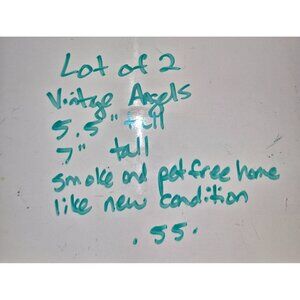 Lot of 2
Vintage Angels
5.5" tall
7" tall
smoke and petfree home
like new condition
.55.